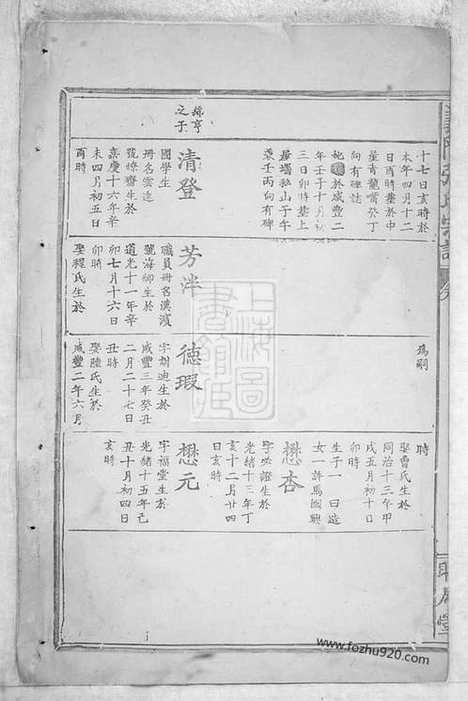 十七日亥時於
本年四月十二
日酉時葬於中
星青龍嘴癸丁
向有碑誌
於咸豐二
年壬子十月初
三日卯時葬上
私山子午
丙向有碑
孫亨
之子
清登
國學生
冊名雲逵
號瞭齋生於
嘉慶十六年辛
未四月初五日
酉時
芳泮
職員冊名漢濱
號海卿生於
道光十一年辛
卯七月十六日
卯時
娶程氏生於
為嗣
德瑕
字樹迪生於
咸豐三年癸丑
二月二十七日
丑時
娶陸氏生於
咸豐二年六月
時
娶曹氏生於
同治十三年甲
戌五月初十日
卯時
生子一曰造
女一許馬國興
懋杏
字必證生於
光緒十三年丁
亥十二月廿四
日亥時
懋元
字福堂生於
光緒十五年己
丑十月初四日
亥時
上海圖書館藏
www.fozhu920.com